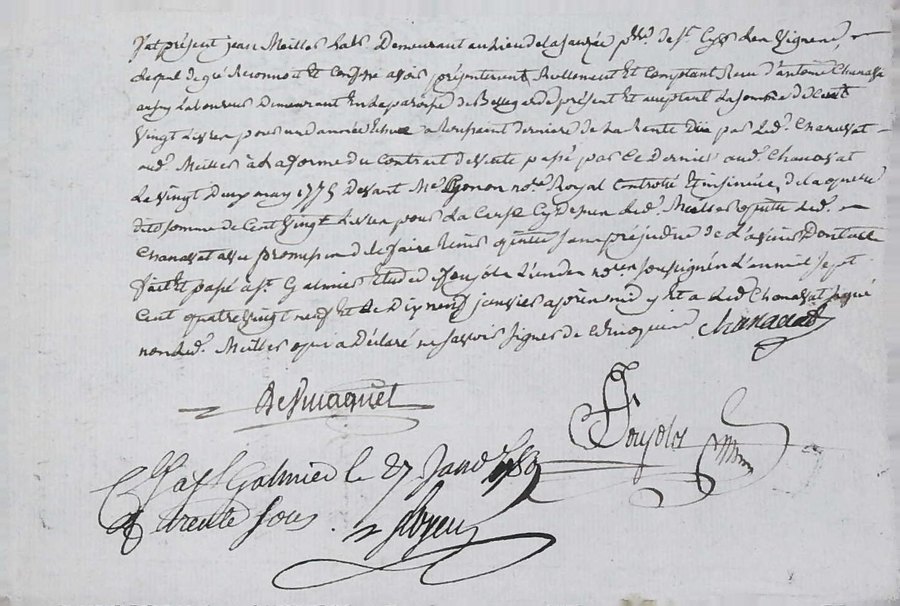 fut présent jean Meiller demeurant au lieu de la par.sse de st.
lequel de gré Reconnoit Et Confesse avoir présentement Reellement Et Comptant Receu d'antoine Chanavat
Laboureur Demeurant En la paroisse de Bellegarde présent Et acceptant La somme de Cent
vingt Livres pour une année Echue a toussaint derniere de La Rente Düe par Led. Chanavat
aud. Meiller a La forme du Contrat de vente passé par Ce Dernier aud. Chanavat
Le vingt Deux may 1775 Devant Me. Gonon nore. Royal Controlé Et insinüé, de laquelle
dite somme de Cent vingt Livres pour La Cause Cy Dessus Led. Meiller quitte Led.
Chanavat avec promesse de faire tenir quitte sans préjudice de L'avenir Dont acte
fait Et passé a st. Galmier Etude Poujolas L'un des nores soussignés L'an mil sept
Cent quatre vingt neuf Et Le Dix neuf janvier après midy Et a Led. Chanavat signé
non Led. Meiller qui a Déclaré ne savoir signer de Ce Enquis Chanavat
Poujolas
Ce a st Galmier le 27 Janv 1789
R trente sous